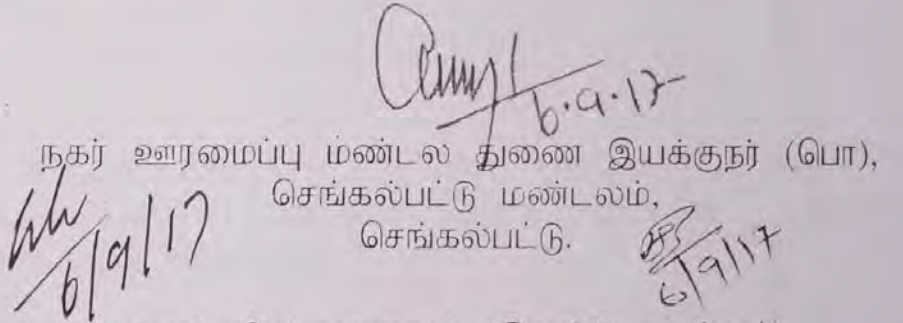 6.9.17
நகர் ஊரமைப்பு மண்டல துணை இயக்குநர் (பொ),
செங்கல்பட்டு மண்டலம்,
செங்கல்பட்டு.
6/9/17
6/9/17